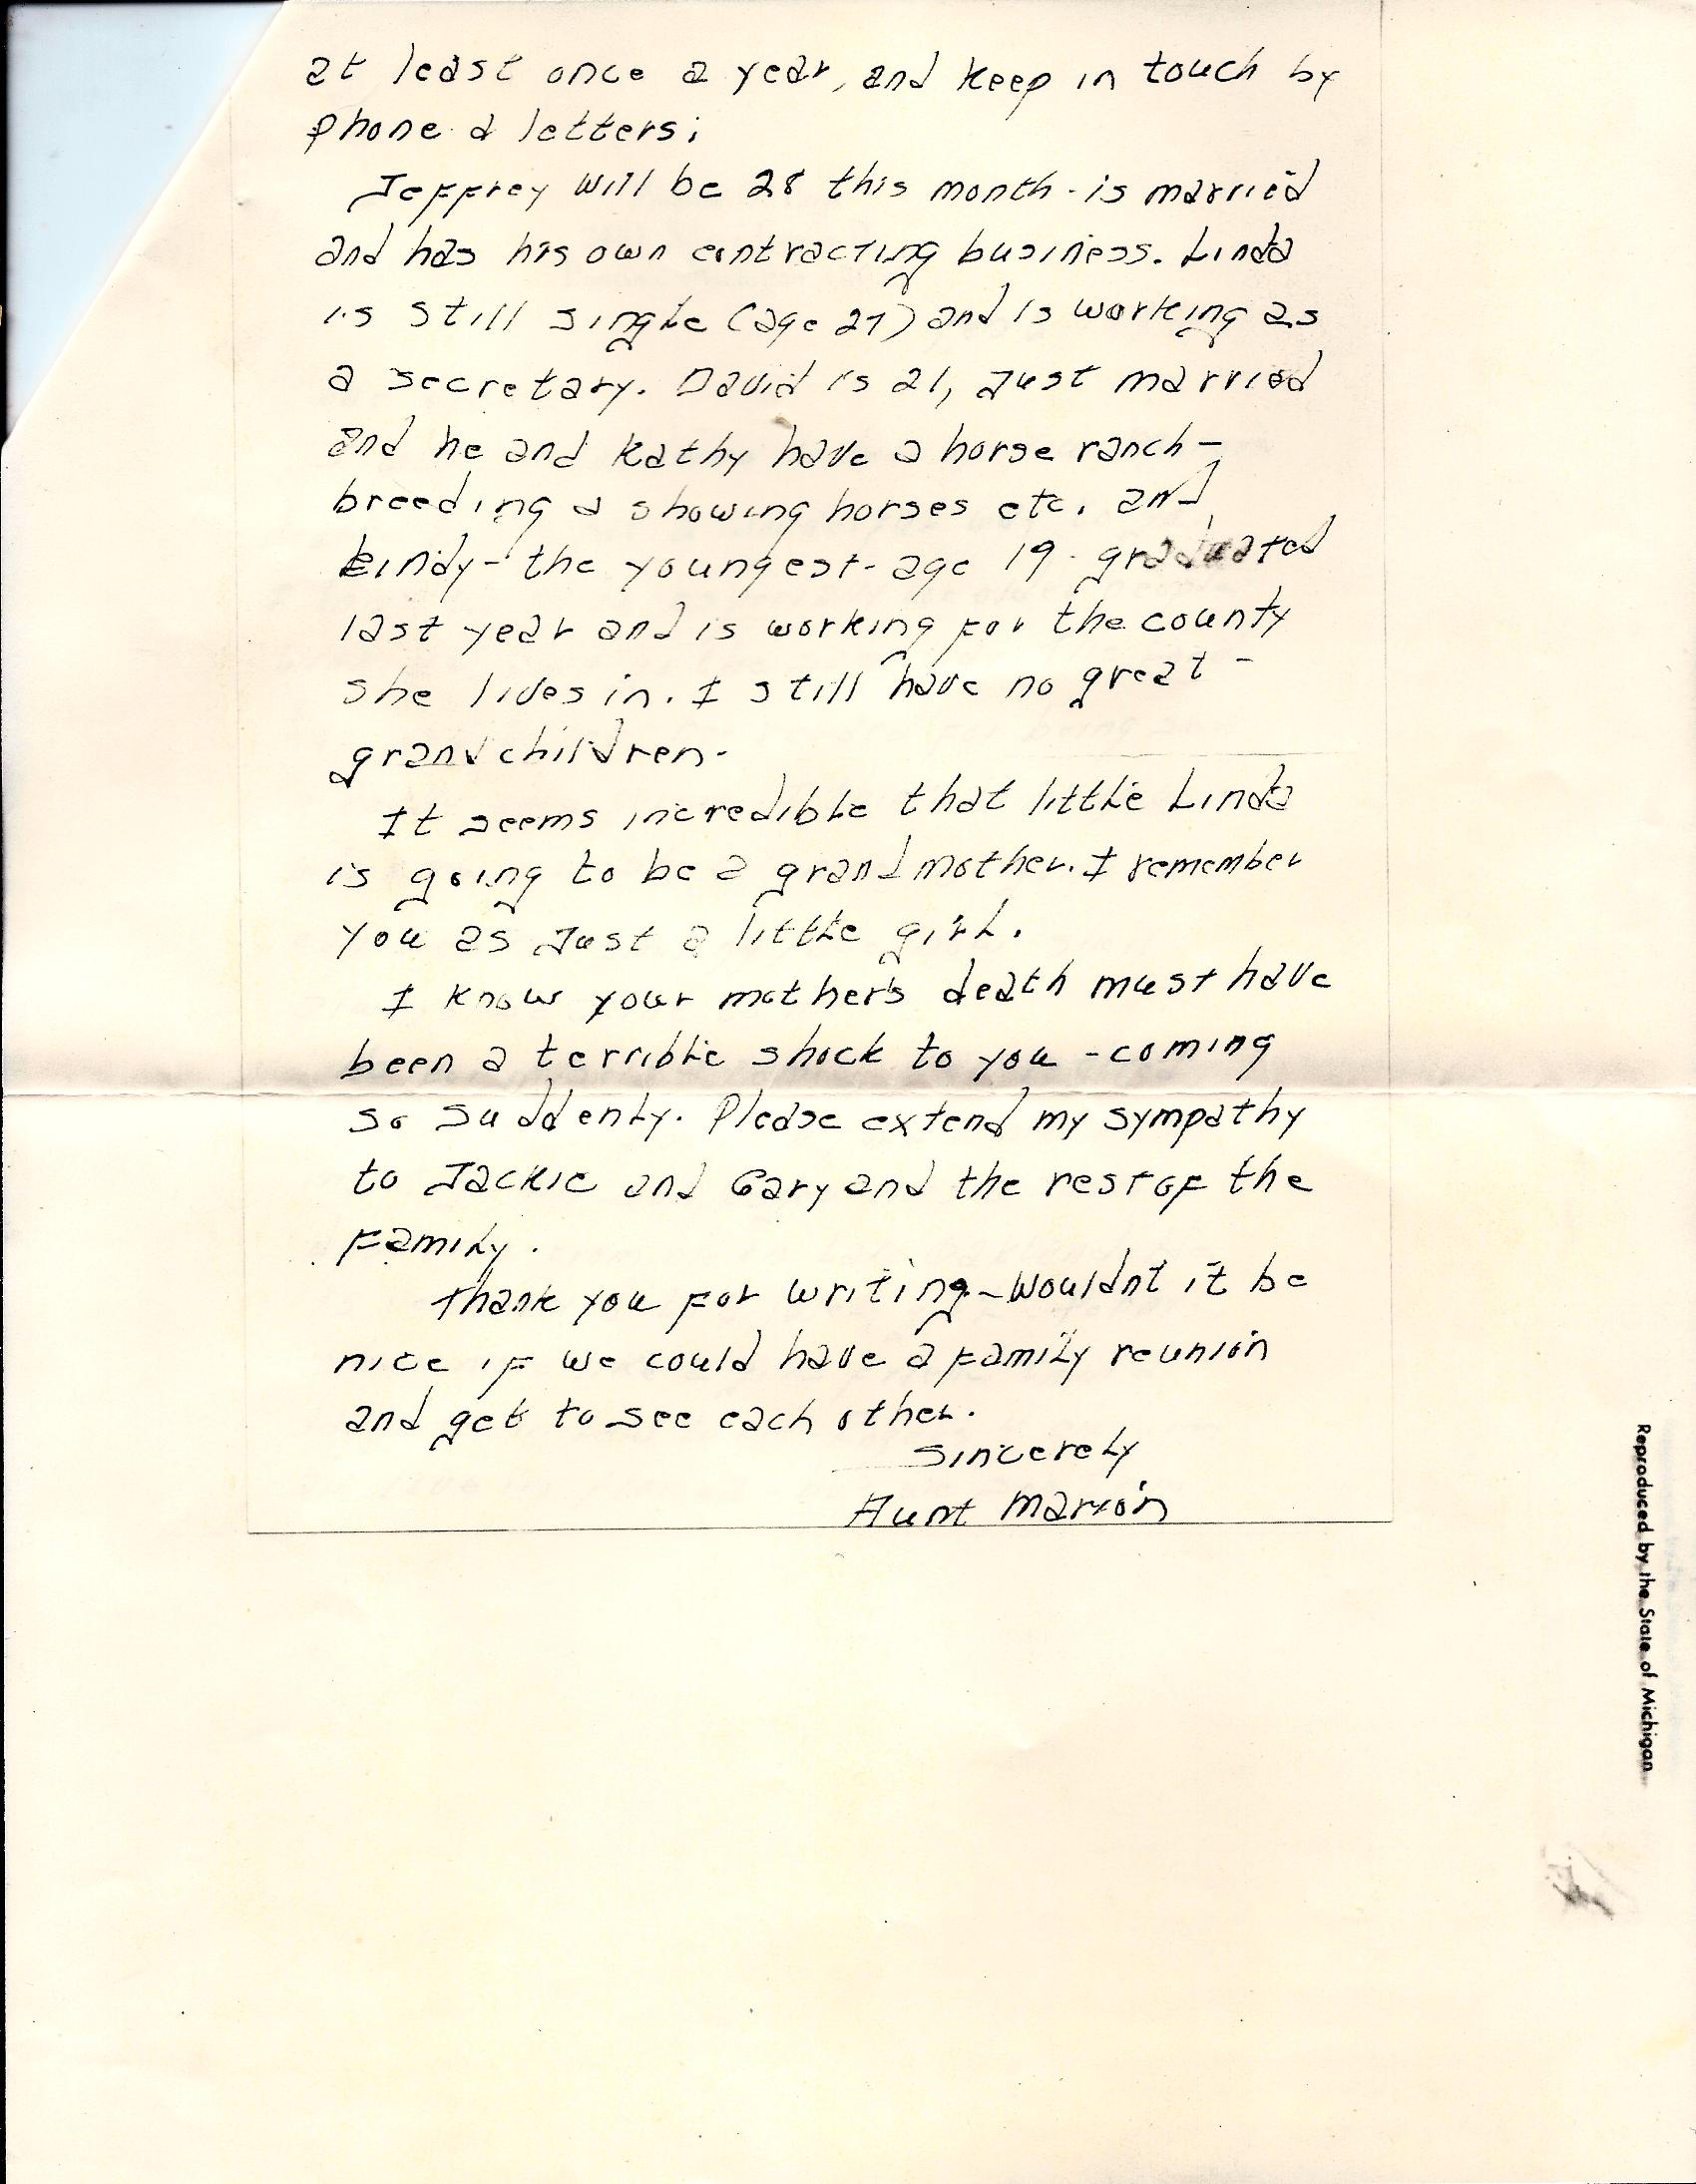 at least once a year, and keep in touch by
phone & letters;
Jeffrey will be 28 this month - is married
and has his own contracting business. Linda
is still single (age 27) and is working as
a secretary. David is 21, Just married
and he and Kathy have a horse ranch -
breeding & showing horses etc. and
the youngest - age 19 - graduated
last year and is working for the county
she lives in. I still have no great -
grandchildren.
It seems incredible that little Linda
is going to be a grandmother. I remember
you as Just a little girl.
I know your mother's death must have
been a terrible shock to you - coming
so suddenly. Please extend my sympathy
to Jackie and Gary and the rest of the
Family.
Thank you for writing - Wouldnt it be
nice if we could have a family reunion
and get to see each other.
Sincerely
Aunt Marion
Reproduced by the State of Michigan